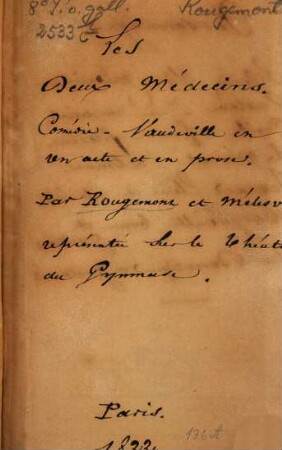 8° P. o. gall. Rougemont
2533 t
Les
Deux Médecins.
Comédie-Vaudeville en
un acte et en prose.
Par Rougemont et Mélesv
représentée sur le théât
du Gymnase.
Paris.
1832
136 A